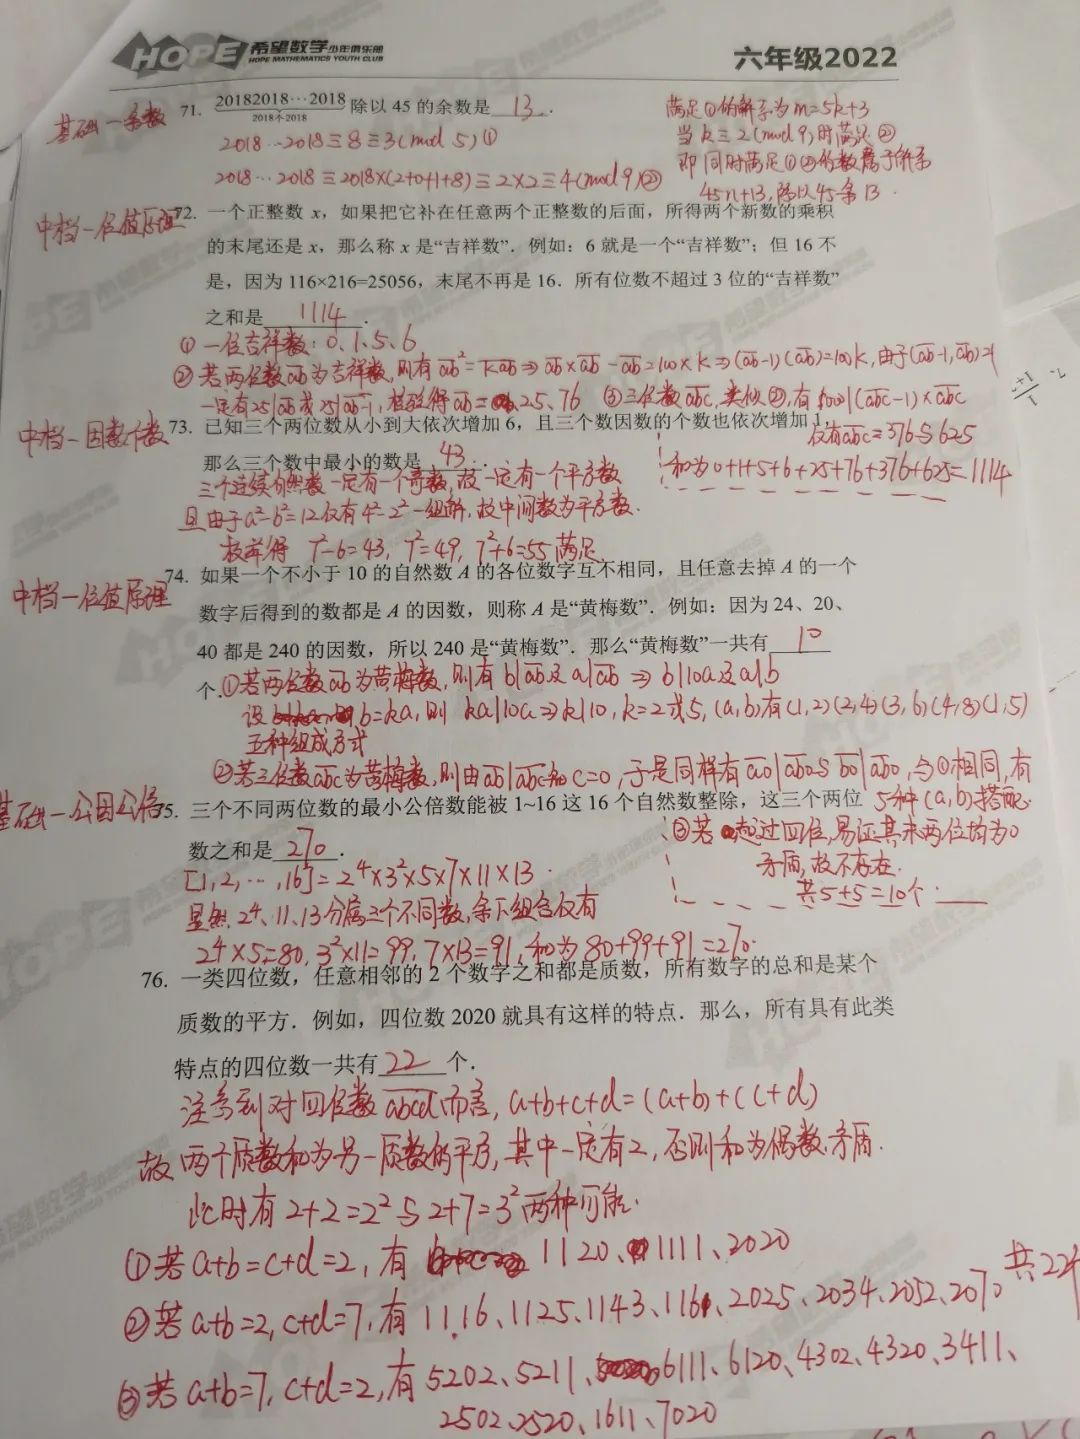 HOPE 希望数学少年俱乐部
HOPE MATHEMATICS YOUTH CLUB
六年级2022
基础-余数
71. 20182018…2018 除以 45 的余数是 13 .
2018个2018
2018…2018≡8≡3(mod 5)①
2018…2018≡2018×(2+0+1+8)≡2×2≡4(mod 9)②
满足①的解系为m=5k+3
当k≡2(mod 9)时满足②
即同时满足①②的数属于解系
45n+13,除以45余13.
中档-位值原理
72. 一个正整数 x，如果把它补在任意两个正整数的后面，所得两个新数的乘积
的末尾还是 x，那么称 x 是“吉祥数”．例如：6 就是一个“吉祥数”；但 16 不
是，因为 116×216=25056，末尾不再是 16．所有位数不超过 3 位的“吉祥数”
之和是 1114 .
①一位吉祥数:0、1、5、6
②若两位数ab为吉祥数,则有ab²=kab⇒ab×ab-ab=100×k⇒(ab-1)(ab)=100k,由于(ab-1,ab)=1
一定有25|ab或25|ab-1,检验得ab=25、76 ③三位数abc,类似②,有1000|(abc-1)×abc
仅有abc=376与625
和为0+1+5+6+25+76+376+625=1114
中档-因数个数
73. 已知三个两位数从小到大依次增加 6，且三个数因数的个数也依次增加 1，
那么三个数中最小的数是 43 .
三个连续自然数一定有一个奇数,故一定有一个平方数
且由于a²-b²=12仅有4²-2²一组解,故中间数为平方数.
枚举得 7²-6=43, 7²=49, 7²+6=55满足
中档-位值原理
74. 如果一个不小于 10 的自然数 A 的各位数字互不相同，且任意去掉 A 的一个
数字后得到的数都是 A 的因数，则称 A 是“黄梅数”．例如：因为 24、20、
40 都是 240 的因数，所以 240 是“黄梅数”．那么“黄梅数”一共有 10
个.
①若两位数ab为黄梅数,则有b|ab及a|ab⇒b|10a及a|b
设b=ka,则ka|10a⇒k|10,k=2或5,(a,b)有(1,2)(2,4)(3,6)(4,8)(1,5)
五种组成方式
②若三位数abc为黄梅数,则由ab|abc知c=0,于是同样有a0|ab0与b0|ab0,与①相同,有
5种(a,b)搭配.
③若超过四位,易证其末两位均为0
矛盾,故不存在.
共5+5=10个.
基础-公因公倍
75. 三个不同两位数的最小公倍数能被 1~16 这 16 个自然数整除，这三个两位
数之和是 270 .
[1,2,…,16]=2⁴×3²×5×7×11×13.
显然2⁴、11、13分属三个不同数,余下组合仅有
2⁴×5=80,3²×11=99,7×13=91,和为80+99+91=270.
76. 一类四位数，任意相邻的 2 个数字之和都是质数，所有数字的总和是某个
质数的平方．例如，四位数 2020 就具有这样的特点．那么，所有具有此类
特点的四位数一共有 22 个．
注意到对四位数abcd而言,a+b+c+d=(a+b)+(c+d)
故两个质数和为另一质数的平方,其中一定有2,否则和为偶数,矛盾.
此时有2+2=2²与2+7=3²两种可能.
①若a+b=c+d=2,有 1120、1111、2020
②若a+b=2,c+d=7,有1116、1125、1143、1161、2025、2034、2052、2070
共22个
③若a+b=7,c+d=2,有5202、5211、6111、6120、4302、4320、3411、
2502、2520、1611、7020